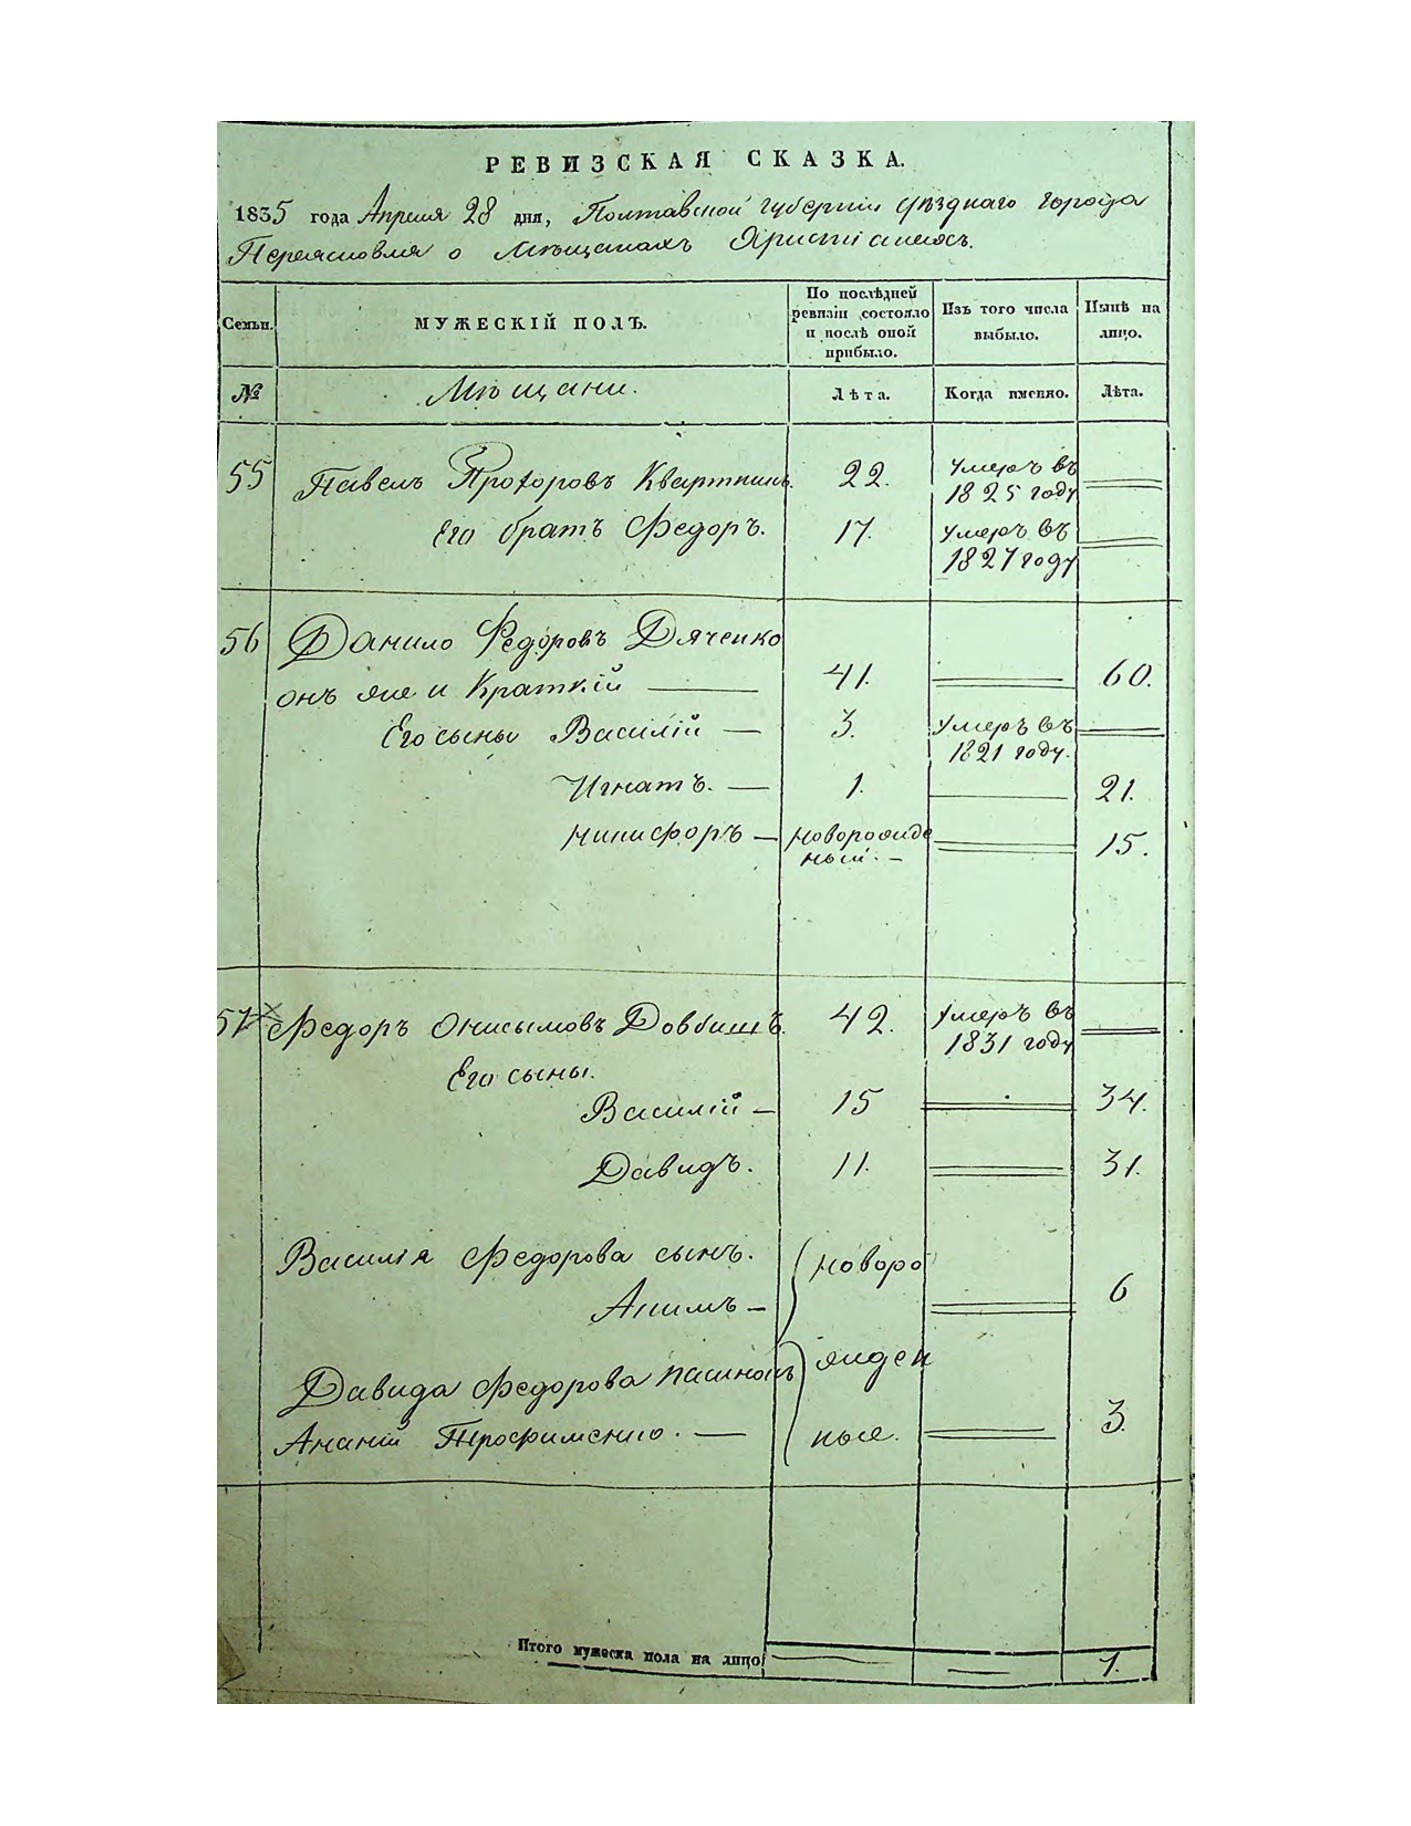 РЕВИЗСКАЯ СКАЗКА.
1835 года Апреля 28 дня, Полтавской губернии уѣзднаго города
Переяславля о мѣщанахъ Християнехъ.
Семьи. МУЖЕСКІЙ ПОЛЪ. По послѣдней ревизіи состояло и послѣ оной прибыло. Изъ того числа выбыло. Нынѣ на лицо.
№ Мѣщани. Лѣта. Когда имеино. Лѣта.
55 Павелъ Прохоровъ 22. умеръ въ 1825 году
Его братъ Федоръ. 17. умеръ въ 1827 году
56 Данило Федоровъ Дяченко
онъ же и Краткій 41. 60.
Его сыны Василій 3. умеръ въ 1821 году.
Игнатъ. 1. 21.
Никифоръ новорожденый. 15.
57 Федоръ Онисымовъ Довбишъ. 42. умеръ въ 1831 году
Его сыны.
Василій 15 34.
Давидъ. 11. 31.
Василія Федорова сынъ. новоро
Акимъ 6
Давида Федорова жден
Ананій Трофименко. ные. 3.
Итого мужеска пола на лицо 7.